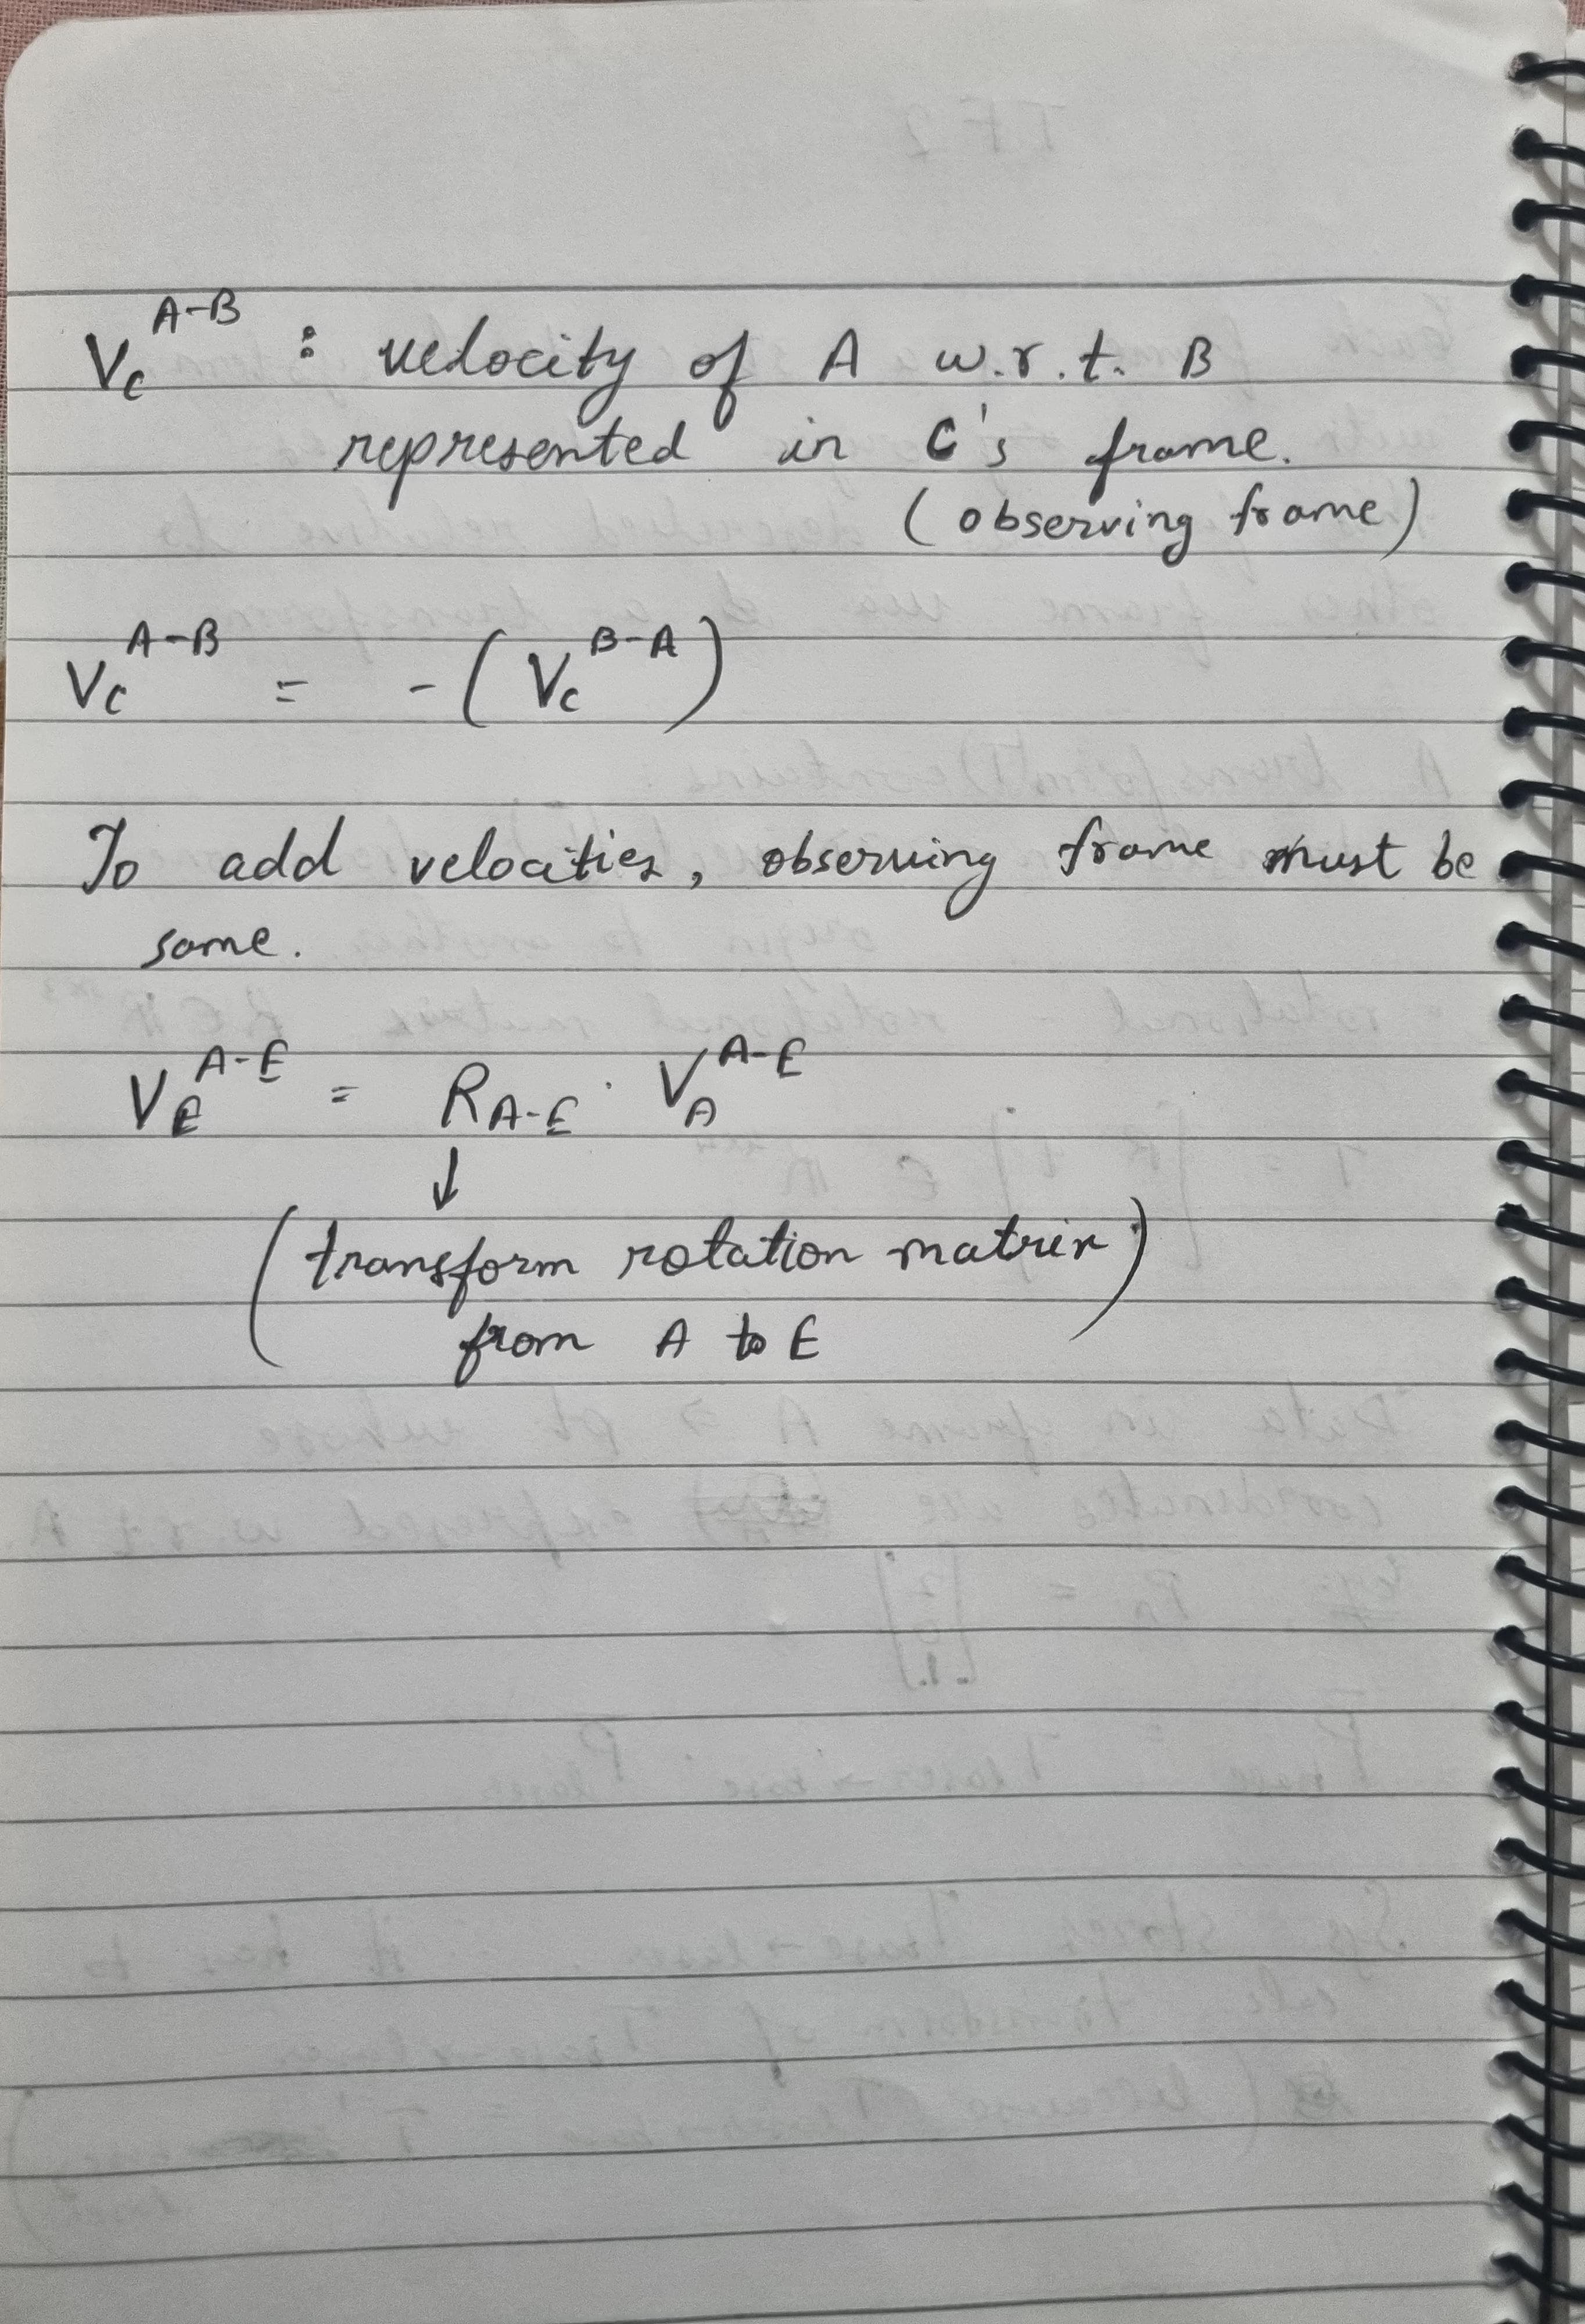 V_C^{A-B} : velocity of A w.r.t. B
represented in C's frame.
(observing frame)
V_C^{A-B} = -(V_C^{B-A})
To add velocities, observing frame must be
same.
V_E^{A-E} = R_{A-E} · V_A^{A-E}
↓
(transform rotation matrix)
from A to E